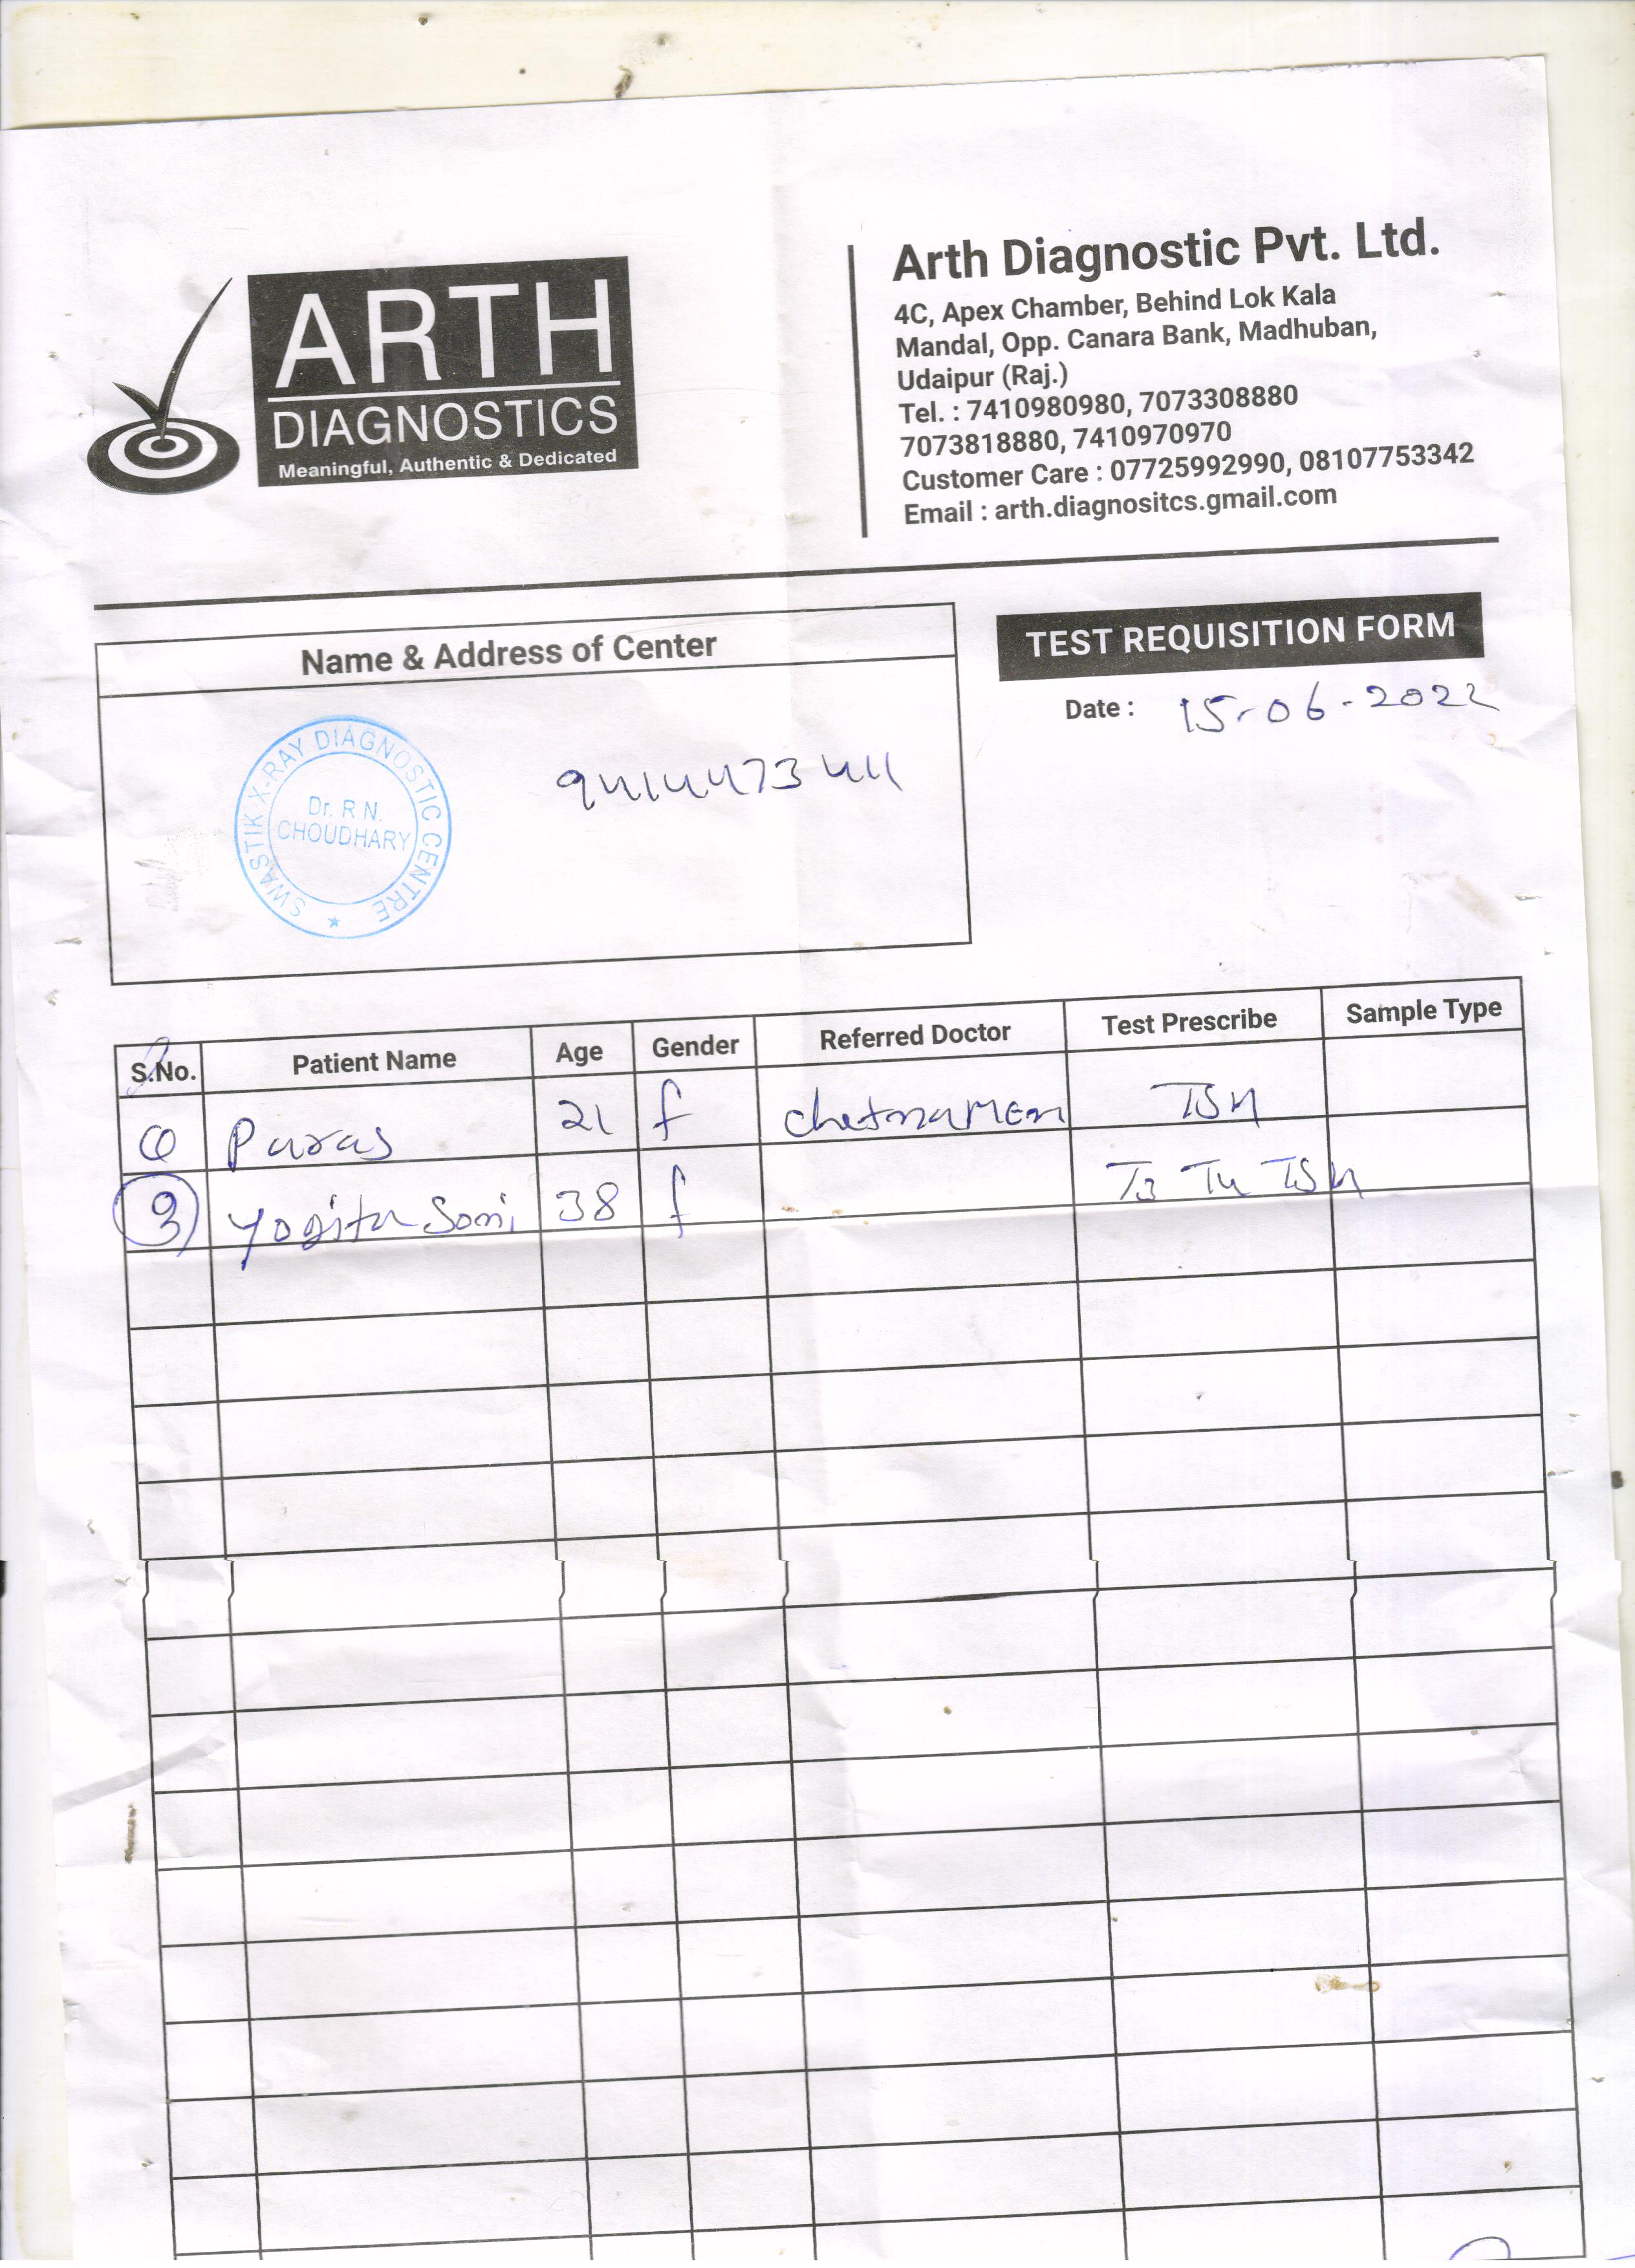 ARTH
DIAGNOSTICS
Meaningful, Authentic & Dedicated
Arth Diagnostic Pvt. Ltd.
4C, Apex Chamber, Behind Lok Kala
Mandal, Opp. Canara Bank, Madhuban,
Udaipur (Raj.)
Tel. : 7410980980, 7073308880
7073818880, 7410970970
Customer Care : 07725992990, 08107753342
Email : arth.diagnositcs.gmail.com
Name & Address of Center
TEST REQUISITION FORM
Date : 15-06-2022
SWASTIK X-RAY DIAGNOSTIC CENTRE
Dr. R.N.
CHOUDHARY
9414473411
S.No. Patient Name Age Gender Referred Doctor Test Prescribe Sample Type
Paras 21 f TSH
3 Yogita Soni 38 f T3 T4 TSH